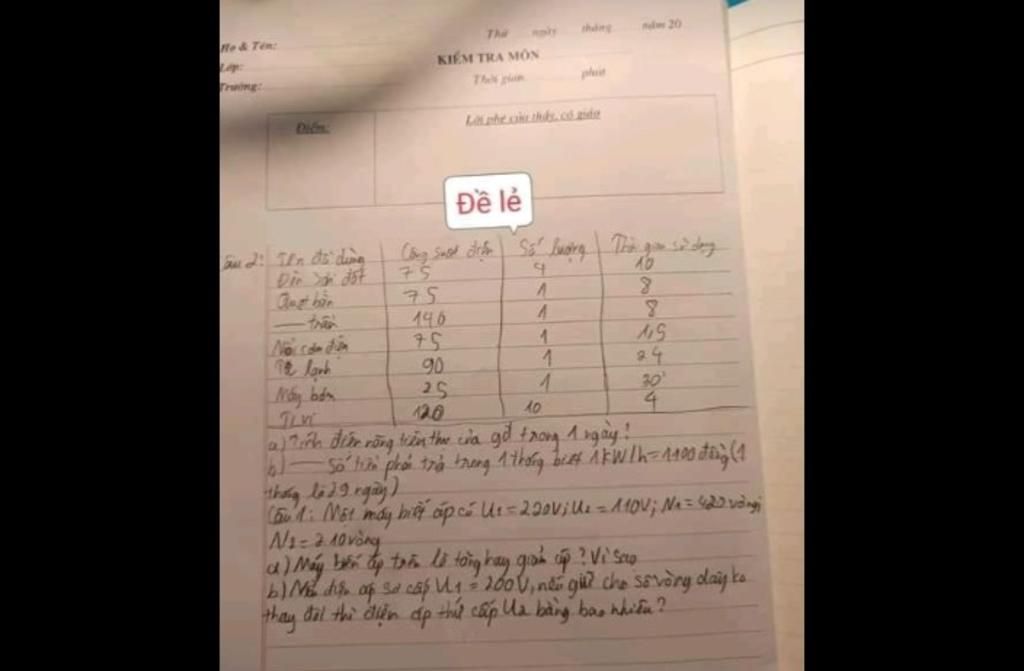 Thứ ngày tháng năm 20
Họ & Tên:
KIỂM TRA MÔN
Lớp:
Thời gian phút
Trường:
Điểm:
Lời phê của thầy, cô giáo
Đề lẻ
Câu 2: Tên đồ dùng Công suất điện Số lượng Thời gian sử dụng
Đèn sợi đốt 75 4 10
Quạt bàn 75 1 8
— trần 140 1 8
Nồi cơm điện 75 1 1,5
Tủ lạnh 90 1 24
Máy bơm 25 1 30'
Ti vi 120 10 4
a) Tính điện năng tiêu thụ của gđ trong 1 ngày!
b) — Số tiền phải trả trong 1 tháng biết 1kW/h = 1100 đồng (1
tháng là 29 ngày)
Câu 1: Một máy biết áp có U1 = 220V; U2 = 110V; N1 = 420 vòng;
N2 = 210 vòng
a) Máy biến áp trên là tăng hay giảm áp? Vì sao
b) Nếu điện áp sơ cấp U1 = 200V, nếu giữ cho số vòng dây ko
thay đổi thì điện áp thứ cấp U2 bằng bao nhiêu?